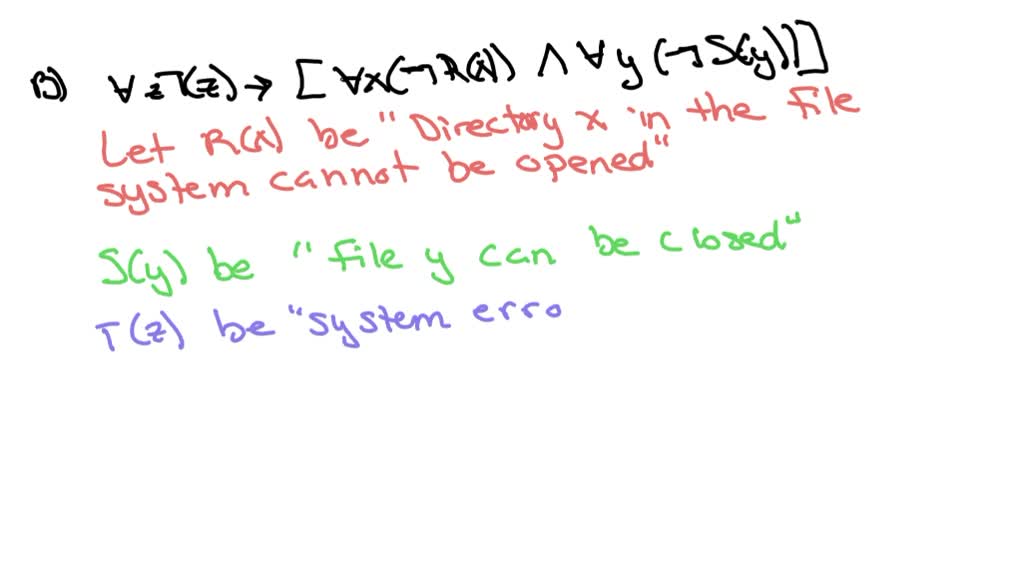 B) ∀zT(z) → [∀x(¬R(x)) ∧ ∀y(¬S(y))]
Let R(x) be "Directory x in the file
system cannot be opened"
S(y) be "file y can be closed"
T(z) be "system erro